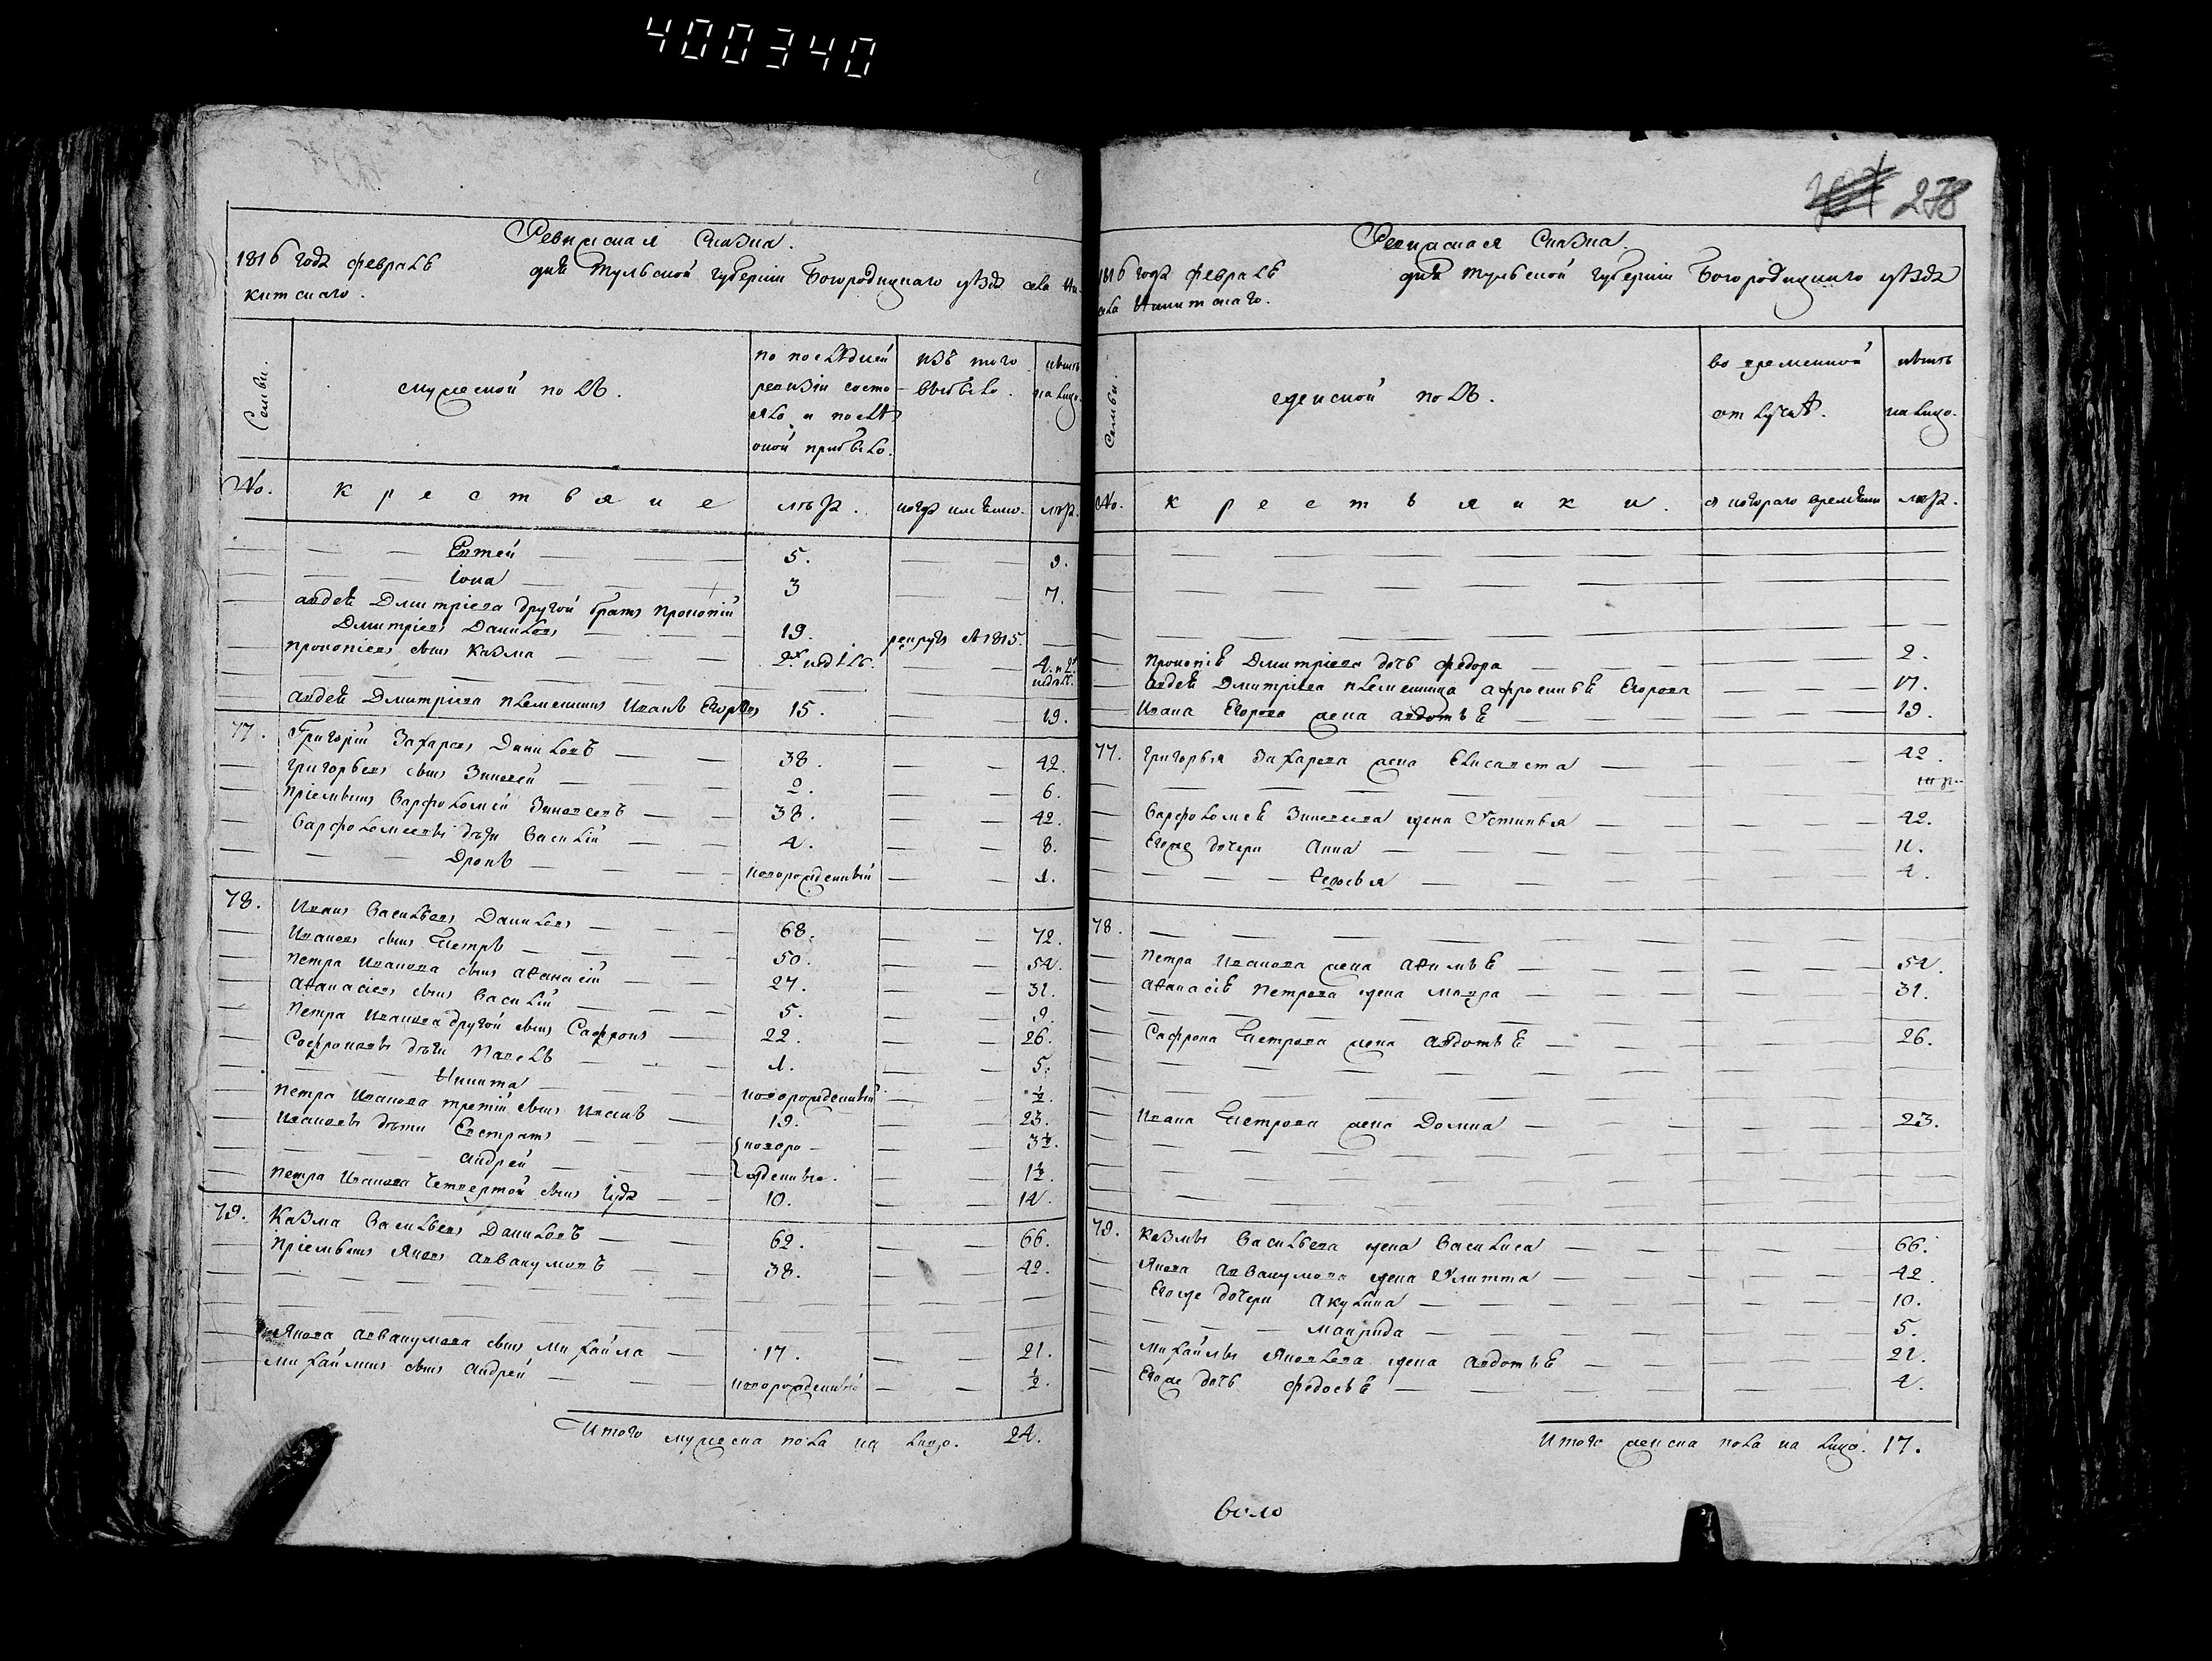 400340
Ревиская Сказка.
1816 года февраля дня Тульской губернии Богородицкаго уѣзда села Ни-
китскаго.
Семьи.
мужеской полъ.
по последней
ревизiи состо
яло и послѣ
оной прибыло.
изъ того
выбыло.
нынѣ
на лицо.
No.
крестьяне
лѣта.
когда имянно.
лѣта.
Евтей 5. 9.
Iона 3 7.
авдея Дмитрiева другой братъ Прокопiй
Дмитрiевъ Даниловъ 19. рекрутъ в 1815.
Прокопiевъ сынъ Казма 2х недѣль. 4. и 2х
недѣл.
авдея Дмитрiева племянникъ Иванъ Егоровъ 15. 19.
77. Григорiй Захаровъ Даниловъ 38. 42.
Григорьевъ сынъ Зиновей 2. 6.
Прiемышъ Варфоломей Зиновеевъ 38. 42.
Варфоломеевы дѣти Василiй 4. 8.
Дронъ новорожденный 4.
78. Иванъ Васильевъ Даниловъ 68. 72.
Ивановъ сынъ Петръ 50. 54.
Петра Иванова сынъ аѳанасiй 27. 31.
аѳанасiевъ сынъ Василiй 5. 9.
Петра Иванова другой сынъ Сафронъ 22. 26.
Сафроновы дѣти Павелъ 1. 5.
Никита новорожденный ½.
Петра Иванова третiй сынъ Иванъ 19. 23.
Ивановы дѣти Евстратъ новоро- 3½.
андрей жденные. 1½.
Петра Иванова четвертой сынъ Iуда 10. 14.
79. Казма Васильевъ Даниловъ 62. 66.
Прiемышъ Яковъ аввакумовъ 38. 42.
Якова аввакумова сынъ михайла 17. 21.
михайлинъ сынъ андрей новорожденный ½.
Итого мужеска пола на лицо. 24.
278
Ревиская Сказка.
1816 года февраля дня Тульской губернии Богородицкаго уѣзда
села Никитскаго.
Семьи.
женской полъ.
во временной
отлучкѣ.
нынѣ
на лицо.
No.
крестьянки.
с котораго времени
лѣта.
Прокопiя Дмитрiева дочь федора 2.
авдея Дмитрiева племянница афросинья Егорова 17.
Ивана Егорова жена авдотья 19.
77. Григорья Захарова жена Елисавета 42.
Варфоломея Зиновеева жена Устинья 42.
Егоже дочери Анна 11.
Ѳедосья 4.
78.
Петра Иванова жена аѳимья 54.
аѳанасiя Петрова жена мавра 31.
Сафрона Петрова жена авдотья 26.
Ивана Петрова жена Домна 23.
79. Казмы Васильева жена Василиса 66.
Якова аввакумова жена Улитта 42.
Егоже дочери акулина 10.
маврида 5.
михайлы Яковлева жена авдотья 21.
Егоже дочь федосья 4.
Итого женска пола на лицо. 17.